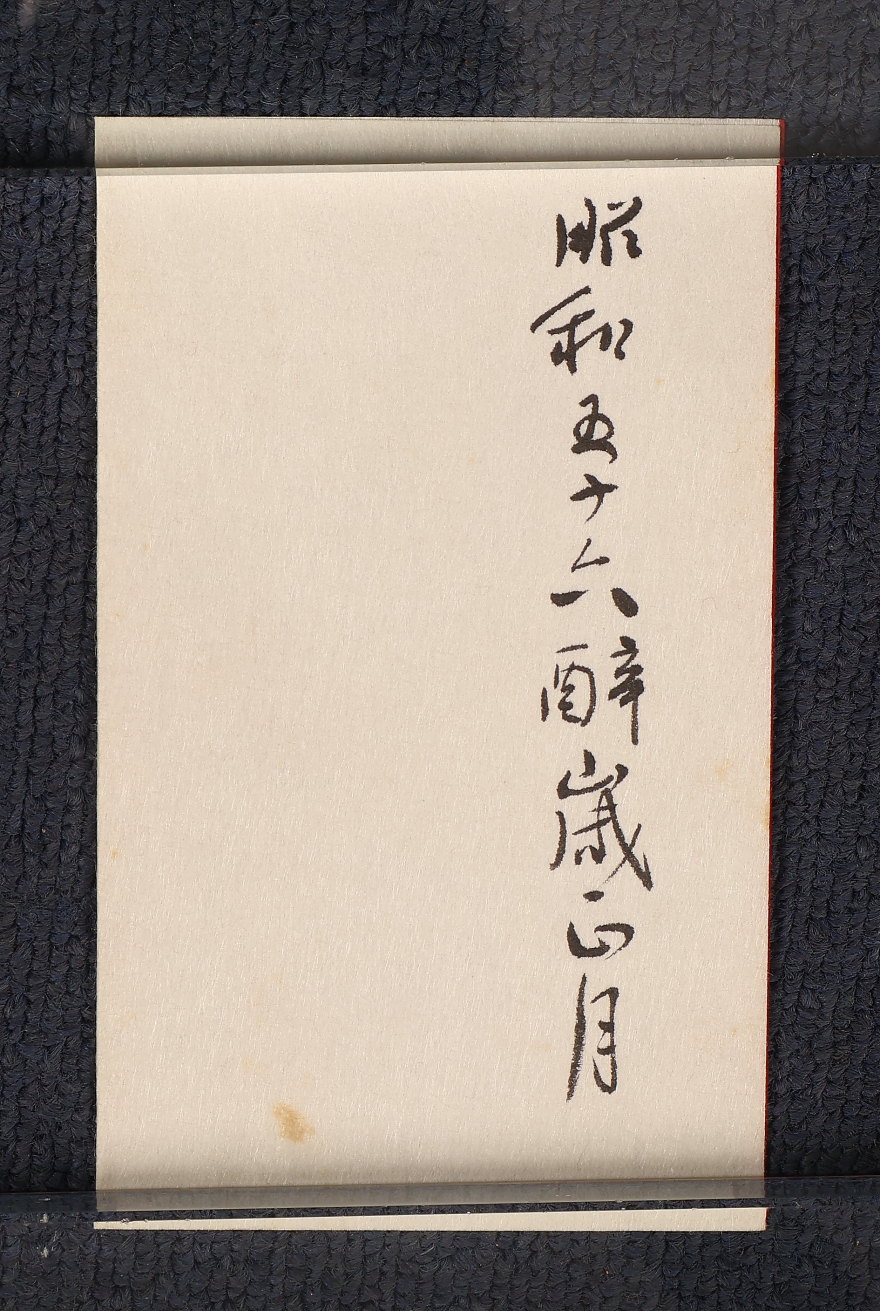 昭和五十六酔歳正月